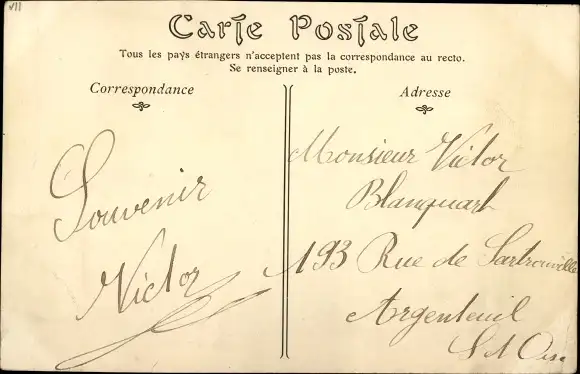 VII
Carte Postale
Tous les pays étrangers n'acceptent pas la correspondance au recto.
Se renseigner à la poste.
Correspondance
Souvenir
Victor
Adresse
Monsieur Victor
Blanquart
193 Rue de Sartrouville
Argenteuil
S et Oise